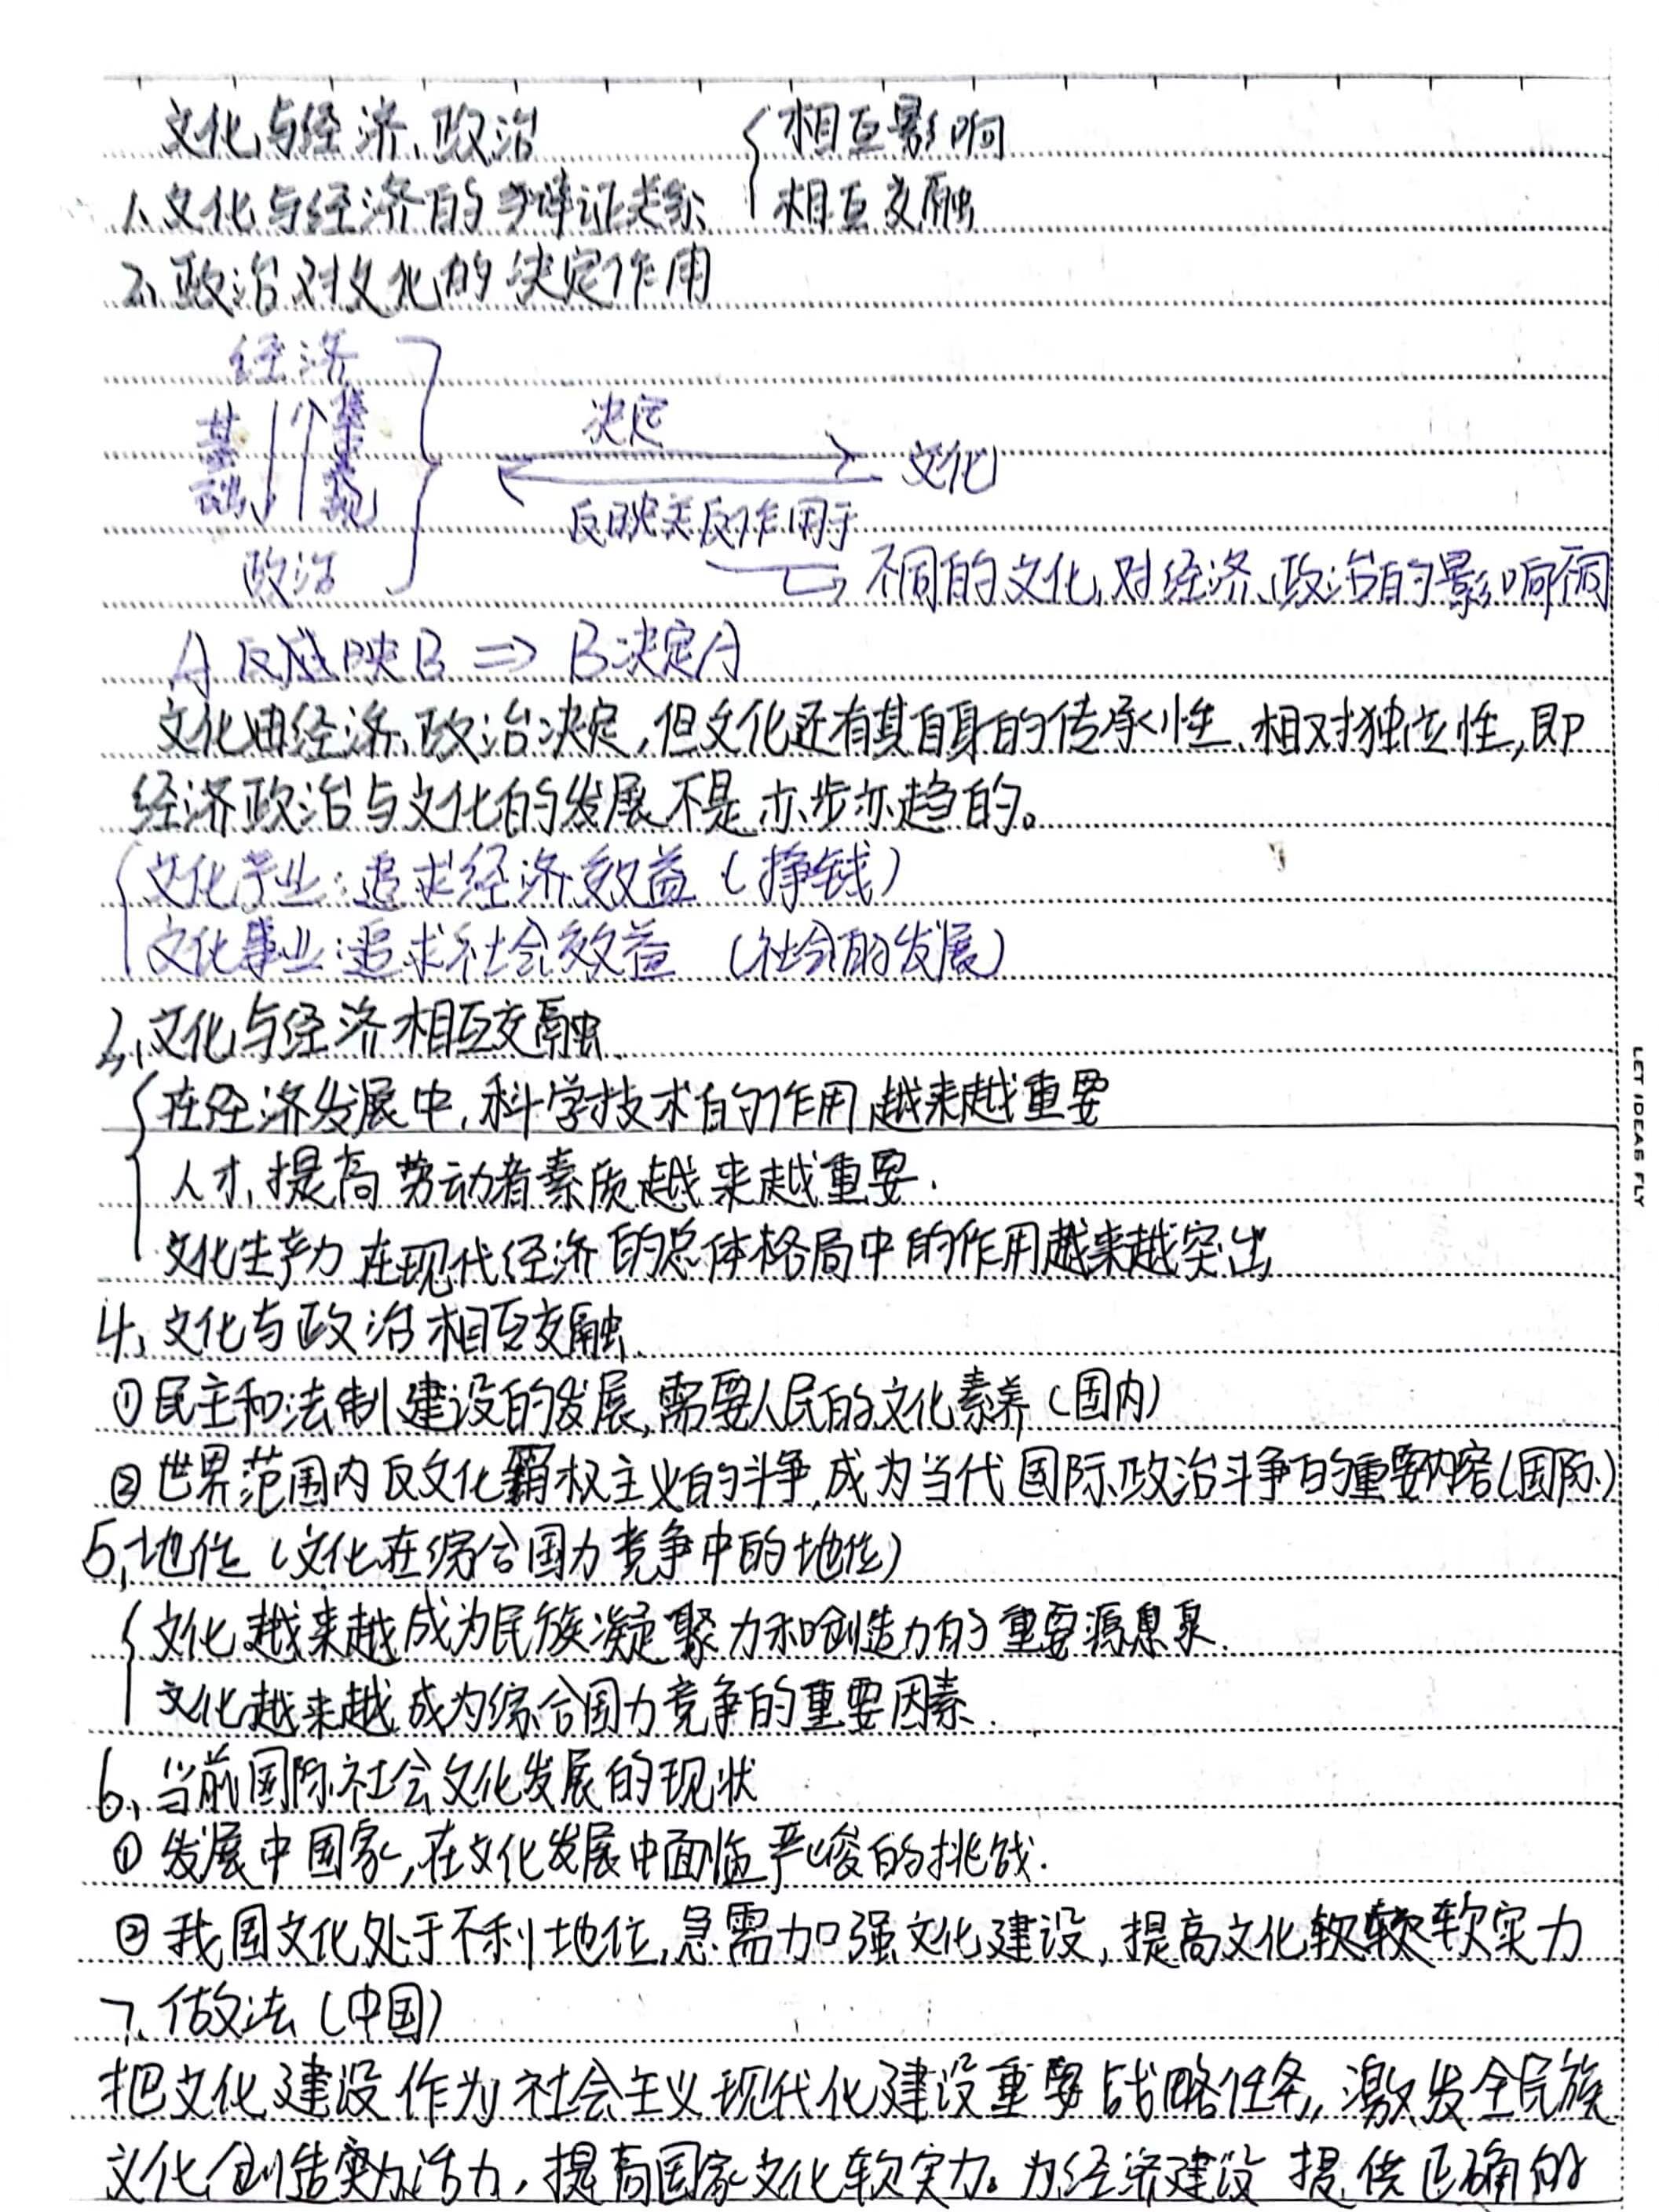 文化与经济、政治 {相互影响
1、文化与经济的辩证关系 相互交融
2、政治对文化的决定作用
经济
基础 集中表现
决定
文化
反映并反作用于
政治
不同的文化,对经济、政治的影响不同
A反映B ⇒ B决定A
文化由经济、政治决定,但文化还有其自身的传承性、相对独立性,即
经济政治与文化的发展不是亦步亦趋的。
{文化产业:追求经济效益(挣钱)
文化事业:追求社会效益(社会的发展)
3、文化与经济相互交融
{在经济发展中,科学技术的作用越来越重要
人才、提高劳动者素质越来越重要.
文化生产力在现代经济的总体格局中的作用越来越突出
4、文化与政治相互交融
①民主和法制建设的发展,需要人民的文化素养(国内)
②世界范围内反文化霸权主义的斗争,成为当代国际政治斗争的重要内容(国际)
5、地位(文化在综合国力竞争中的地位)
{文化越来越成为民族凝聚力和创造力的重要源泉.
文化越来越成为综合国力竞争的重要因素.
6、当前国际社会文化发展的现状
①发展中国家,在文化发展中面临严峻的挑战.
②我国文化处于不利地位,急需加强文化建设,提高文化软实力
7、做法(中国)
把文化建设作为社会主义现代化建设重要战略任务,激发全民族
文化创造活力,提高国家文化软实力。为经济建设提供正确的
LET IDEAS FLY